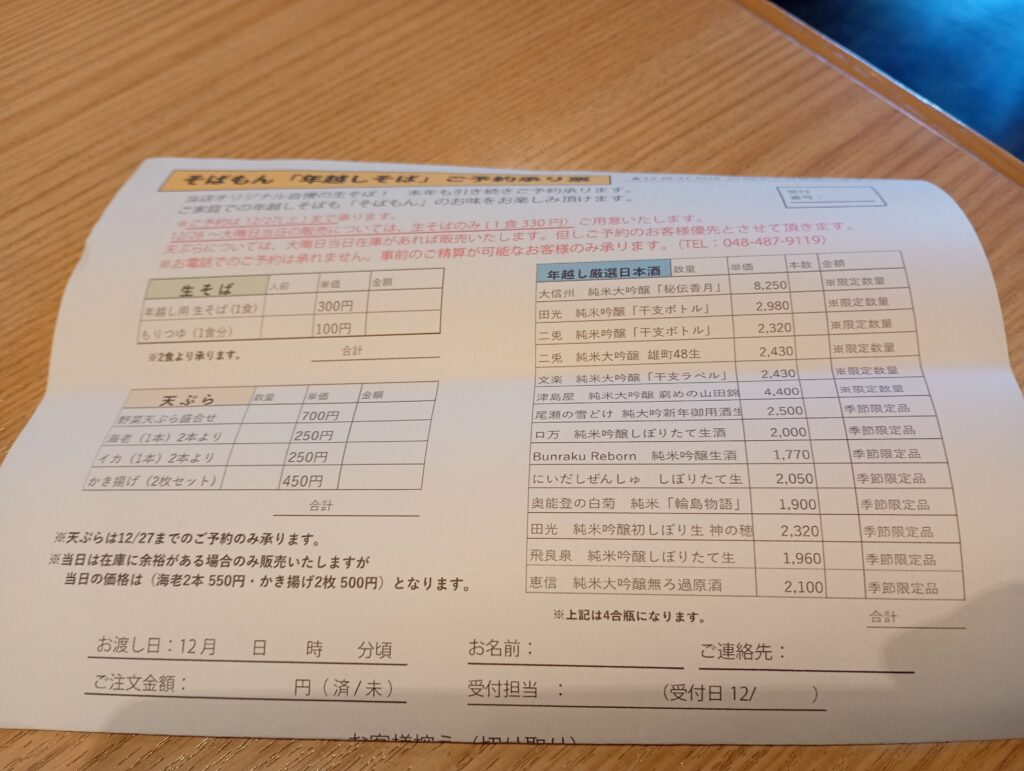 そばもん「年越しそば」ご予約承り票
受付
番号：
当店オリジナル自慢の生そば！ 本年も引き続きご予約承ります。
ご家庭での年越しそばも「そばもん」のお味をお楽しみ頂けます。
※ご予約は12/27(土)まで承ります。
12/28～大晦日当日の販売については、生そばのみ(1食330円)ご用意いたします。
天ぷらについては、大晦日当日在庫があれば販売いたします。但しご予約のお客様優先とさせて頂きます。
※お電話でのご予約は承れません。事前のご精算が可能なお客様のみ承ります。（TEL：048-487-9119）
生そば 人前 単価 金額
年越し用 生そば(1食) 300円
もりつゆ（1食分） 100円
※2食より承ります。 合計
天ぷら 数量 単価 金額
野菜天ぷら盛合せ 700円
海老（1本）2本より 250円
イカ（1本）2本より 250円
かき揚げ（2枚セット） 450円
合計
※天ぷらは12/27までのご予約のみ承ります。
※当日は在庫に余裕がある場合のみ販売いたしますが
当日の価格は（海老2本 550円・かき揚げ2枚 500円）となります。
年越し厳選日本酒 数量 単価 本数 金額
大信州 純米大吟醸「秘伝香月」 8,250 ※限定数量
田光 純米吟醸「干支ボトル」 2,980 ※限定数量
二兎 純米吟醸「干支ボトル」 2,320 ※限定数量
二兎 純米大吟醸 雄町48生 2,430 ※限定数量
文楽 純米大吟醸「干支ラベル」 2,430 ※限定数量
津島屋 純米大吟醸 窮めの山田錦 4,400 ※限定数量
尾瀬の雪どけ 純大吟新年御用酒生 2,500 季節限定品
ロ万 純米吟醸しぼりたて生酒 2,000 季節限定品
Bunraku Reborn 純米吟醸生酒 1,770 季節限定品
にいだしぜんしゅ しぼりたて生 2,050 季節限定品
奥能登の白菊 純米「輪島物語」 1,900 季節限定品
田光 純米吟醸初しぼり生 神の穂 2,320 季節限定品
飛良泉 純米吟醸しぼりたて生 1,960 季節限定品
恵信 純米大吟醸無ろ過原酒 2,100 季節限定品
※上記は4合瓶になります。 合計
お渡し日：12月 日 時 分頃
お名前： ご連絡先：
ご注文金額： 円（済/未）
受付担当 ： （受付日 12/ ）
お客様控え（切り取り）